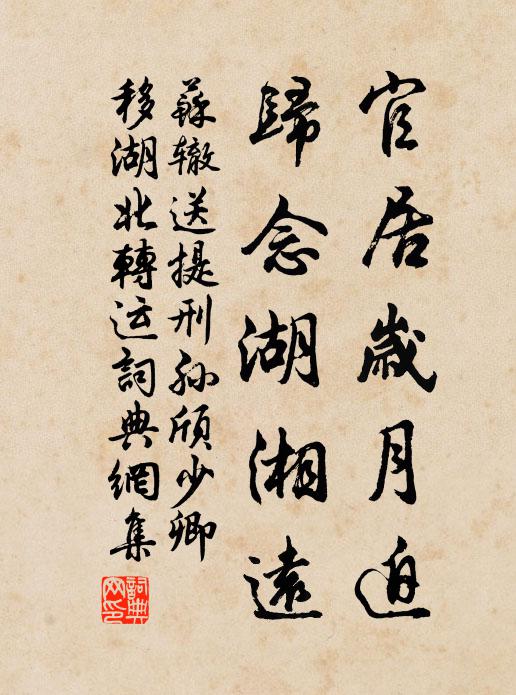 官居歲月迫
歸念湖湘遠
蘇辙送提刑孙頎少卿
移湖北轉运詞典網集
詞典
网印